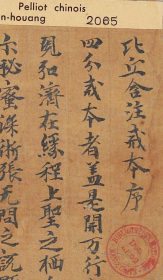 Pelliot chinois
n-houang 2065
比丘含注戒本序
四分戒本者蓋是開万行
風弘濟在緣程上聖之栖
示秘蜜深術張无閡之託